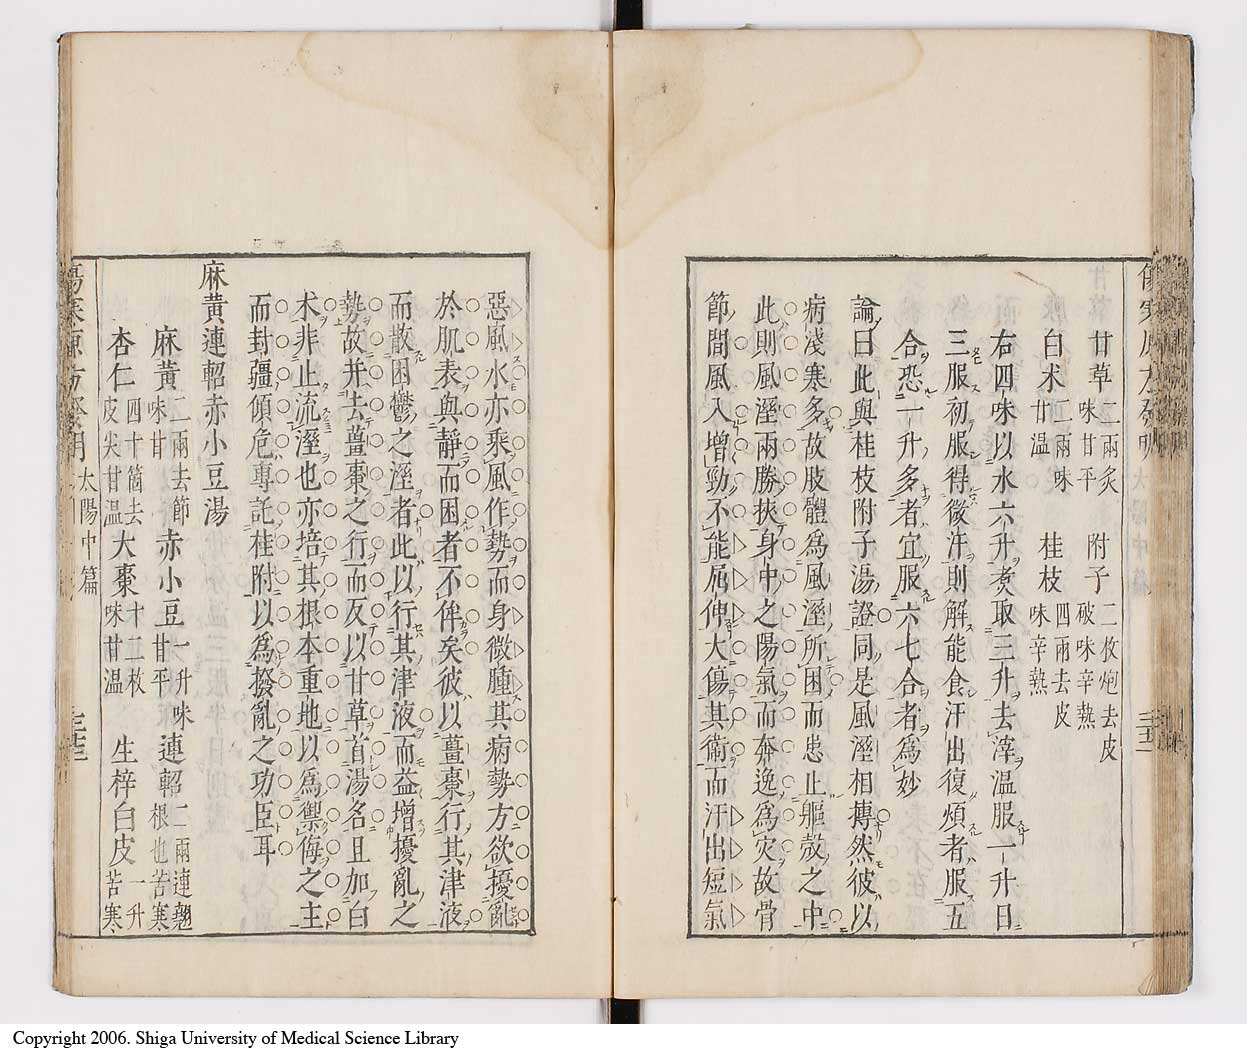 甘草 二兩炙味甘平 附子 二枚炮去皮破味辛熱
白朮 二兩味甘溫 桂枝 四兩去皮味辛熱
右四味以水六升煮取三升去滓溫服一升日
三服初服得微汗則解能食汗出復煩者服五
合恐一升多者宜服六七合者為妙
論曰此與桂枝附子湯證同是風溼相摶然彼以
病淺寒多故肢體為風溼所困而患止軀殼之中
此則風溼兩勝挾身中之陽氣而奔逸為灾故骨
節間風入增勁不能屈伸大傷其衛而汗出短氣
惡風水亦乘風作勢而身微腫其病勢方欲擾亂
於肌表與靜而困者不侔矣彼以薑棗行其津液
而散困鬱之溼者此以行其津液而益增擾亂之
勢故并去薑棗之行而反以甘草首湯名且加白
朮非止流溼也亦培其根本重地以為禦侮之主
而封疆傾危專託桂附以為撥亂之功臣耳
麻黃連軺赤小豆湯
麻黃 二兩去節味甘 赤小豆 一升味甘平 連軺 二兩連翹根也苦寒
杏仁 四十箇去皮尖甘溫 大棗 十二枚味甘溫 生梓白皮 一升苦寒
太陽中篇
Copyright 2006. Shiga University of Medical Science Library